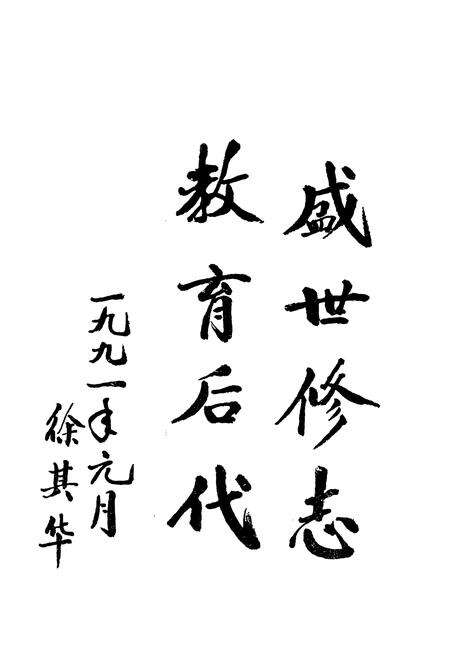 盛世修志
教育后代
一九九一年元月
徐其华